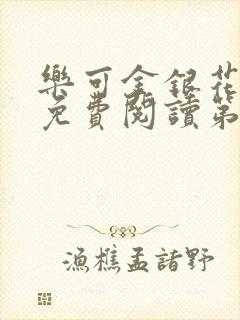 樂可金銀花
免費閱讀第
漁樵孟諸野